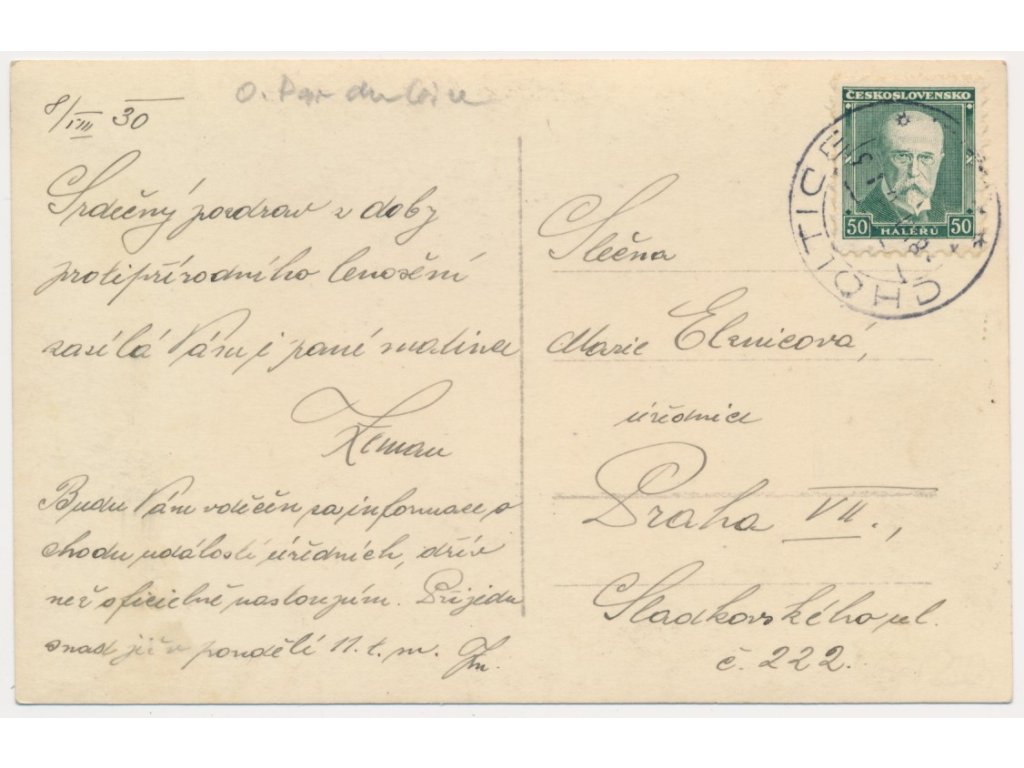 O. Pardubice
8/VIII 30
Srdečný pozdrav z doby
protipřírodního lenošení
zasílá Vám i paní matince
Zeman
Budu Vám vděčen za informace o
chodu událostí úředních, dřív
než oficielně nastoupím. Přijedu
snad již v pondělí 11. t. m. Zm.
ČESKOSLOVENSKO
50 HALÉŘŮ 50
CHOLTICE
Slečna
Marie
úřednice
Praha VII.,
Sladkovského ul.
č. 222.